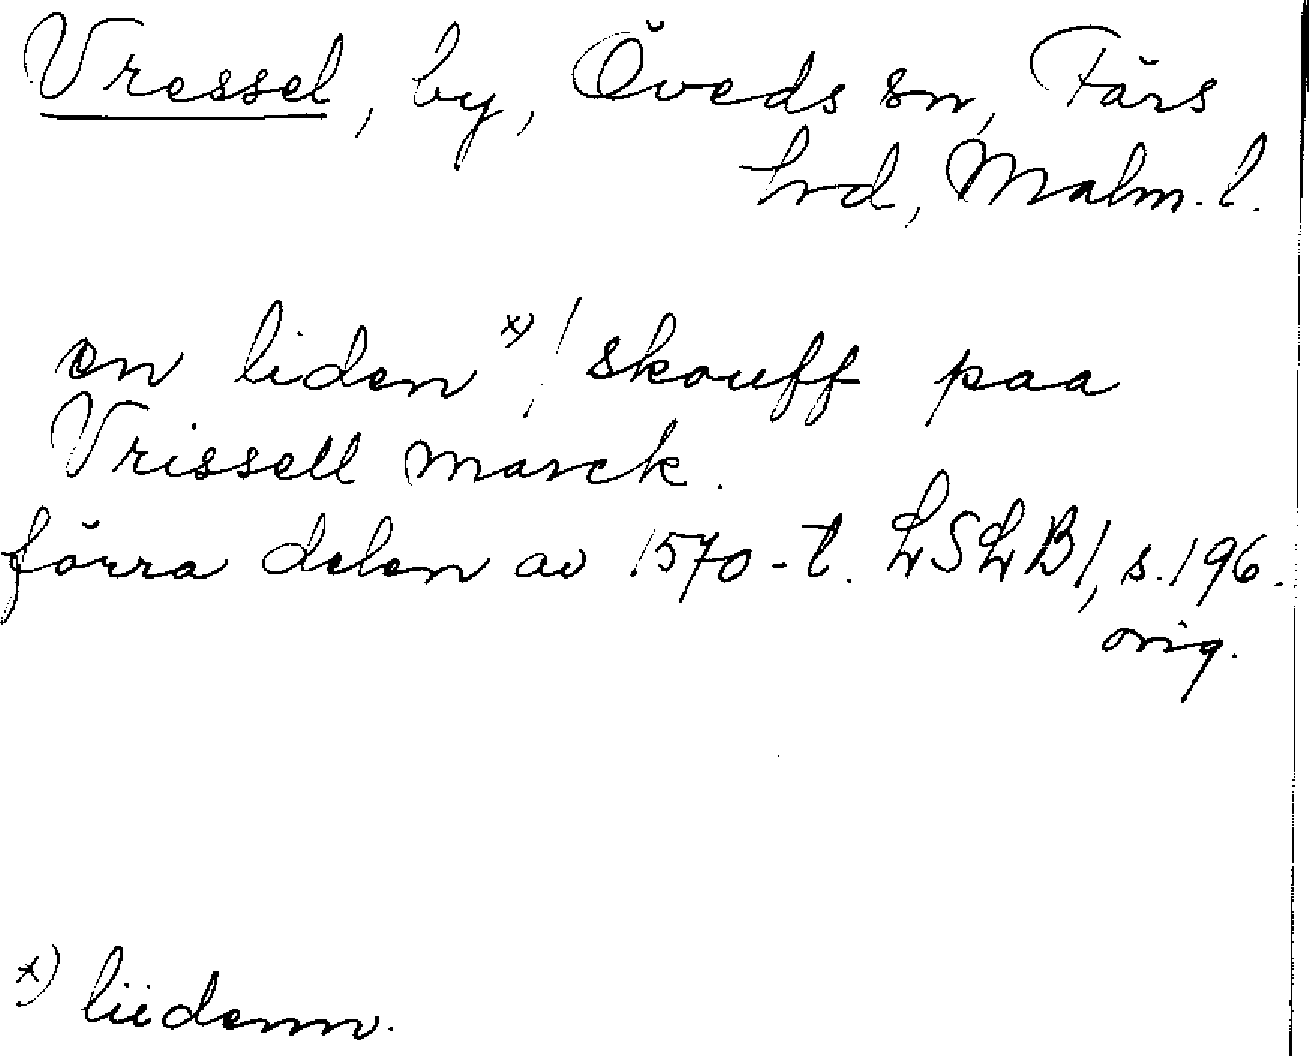 Vressel, by, Öveds sn, Färs
hrd, Malm. l.
en liden x) / skouff paa
Vrissell marck.
förra delen av 1570-t. LSLB 1, s. 196.
orig.
x) liidenn.